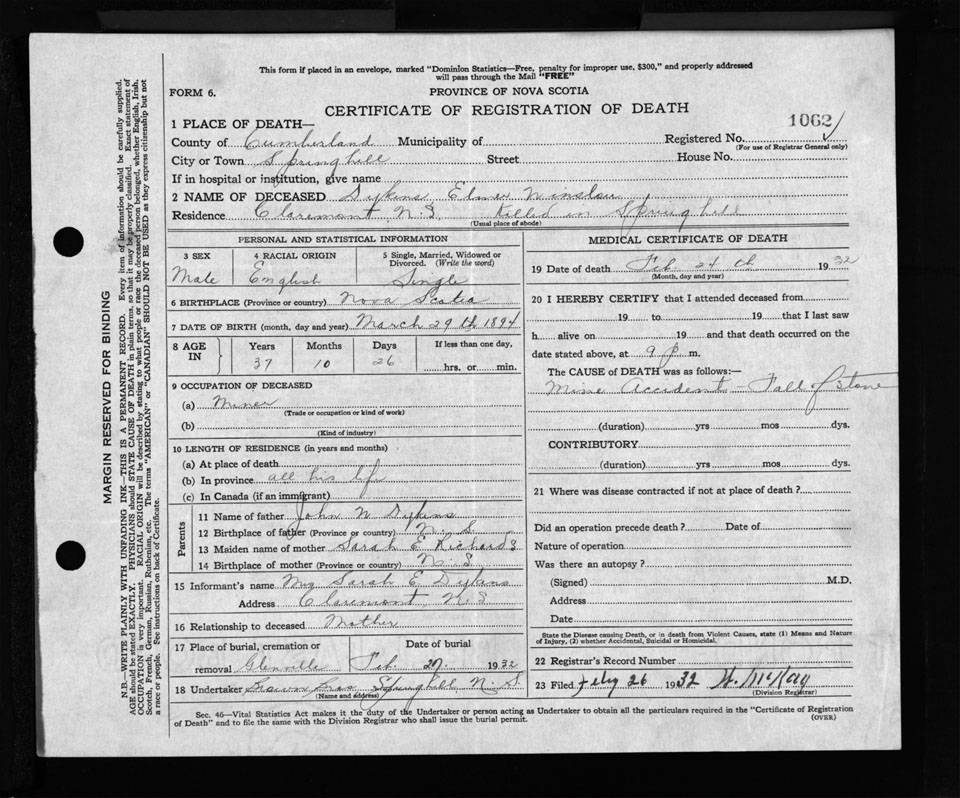 This form if placed in an envelope, marked "Dominion Statistics—Free, penalty for improper use, $300," and properly addressed
will pass through the Mail "FREE"
FORM 6.
PROVINCE OF NOVA SCOTIA
CERTIFICATE OF REGISTRATION OF DEATH
1062
1 PLACE OF DEATH—
County of Cumberland Municipality of Registered No.
(For use of Registrar General only)
City or Town Springhill Street House No.
If in hospital or institution, give name
2 NAME OF DECEASED Dykins Elmer Winslow
Residence Claremont N.S. Killed in Springhill
(Usual place of abode)
PERSONAL AND STATISTICAL INFORMATION
3 SEX 4 RACIAL ORIGIN 5 Single, Married, Widowed or
Divorced. (Write the word)
Male English Single
6 BIRTHPLACE (Province or country) Nova Scotia
7 DATE OF BIRTH (month, day and year) March 29th 1894
8 AGE IN Years Months Days If less than one day,
37 10 26 hrs. or min.
9 OCCUPATION OF DECEASED
(a) Miner
(Trade or occupation or kind of work)
(b)
(Kind of industry)
10 LENGTH OF RESIDENCE (in years and months)
(a) At place of death
(b) In province all his life
(c) In Canada (if an immigrant)
Parents
11 Name of father John W Dykins
12 Birthplace of father (Province or country) N. S.
13 Maiden name of mother Sarah E Richards
14 Birthplace of mother (Province or country) N. S.
15 Informant's name Mrs Sarah E Dykins
Address Claremont, N.S
16 Relationship to deceased Mother
17 Place of burial, cremation or Date of burial
removal Glenville Feb. 27. 1932
18 Undertaker Brown Bros Springhill N. S.
(Name and address)
MEDICAL CERTIFICATE OF DEATH
19 Date of death Feb 24th 1932
(Month, day and year)
20 I HEREBY CERTIFY that I attended deceased from
19 to 19 that I last saw
h alive on 19 and that death occurred on the
date stated above, at 9 p m.
The CAUSE of DEATH was as follows:—
Mine Accident - Fall of Stone
(duration) yrs mos dys.
CONTRIBUTORY
(duration) yrs mos dys.
21 Where was disease contracted if not at place of death?
Did an operation precede death? Date of
Nature of operation
Was there an autopsy?
(Signed) M.D.
Address
Date
State the Disease causing Death, or in death from Violent Causes, state (1) Means and Nature
of Injury, (2) whether Accidental, Suicidal or Homicidal.
22 Registrar's Record Number
23 Filed Feby 26 1932 H. McKay
(Division Registrar)
Sec. 46—Vital Statistics Act makes it the duty of the Undertaker or person acting as Undertaker to obtain all the particulars required in the "Certificate of Registration
of Death" and to file the same with the Division Registrar who shall issue the burial permit.
(OVER)
MARGIN RESERVED FOR BINDING
N.B.—WRITE PLAINLY WITH UNFADING INK—THIS IS A PERMANENT RECORD. Every item of information should be carefully supplied.
AGE should be stated EXACTLY. PHYSICIANS should STATE CAUSE OF DEATH in plain terms, so that it may be properly classified. Exact statement of
OCCUPATION is very important. RACIAL ORIGIN will be described by stating to what people or race the deceased person belonged, whether English, Irish,
Scotch, French, German, Russian, Ruthenian, etc. The terms "AMERICAN" or "CANADIAN" SHOULD NOT BE USED as they express citizenship but not
a race or people. See instructions on back of Certificate.